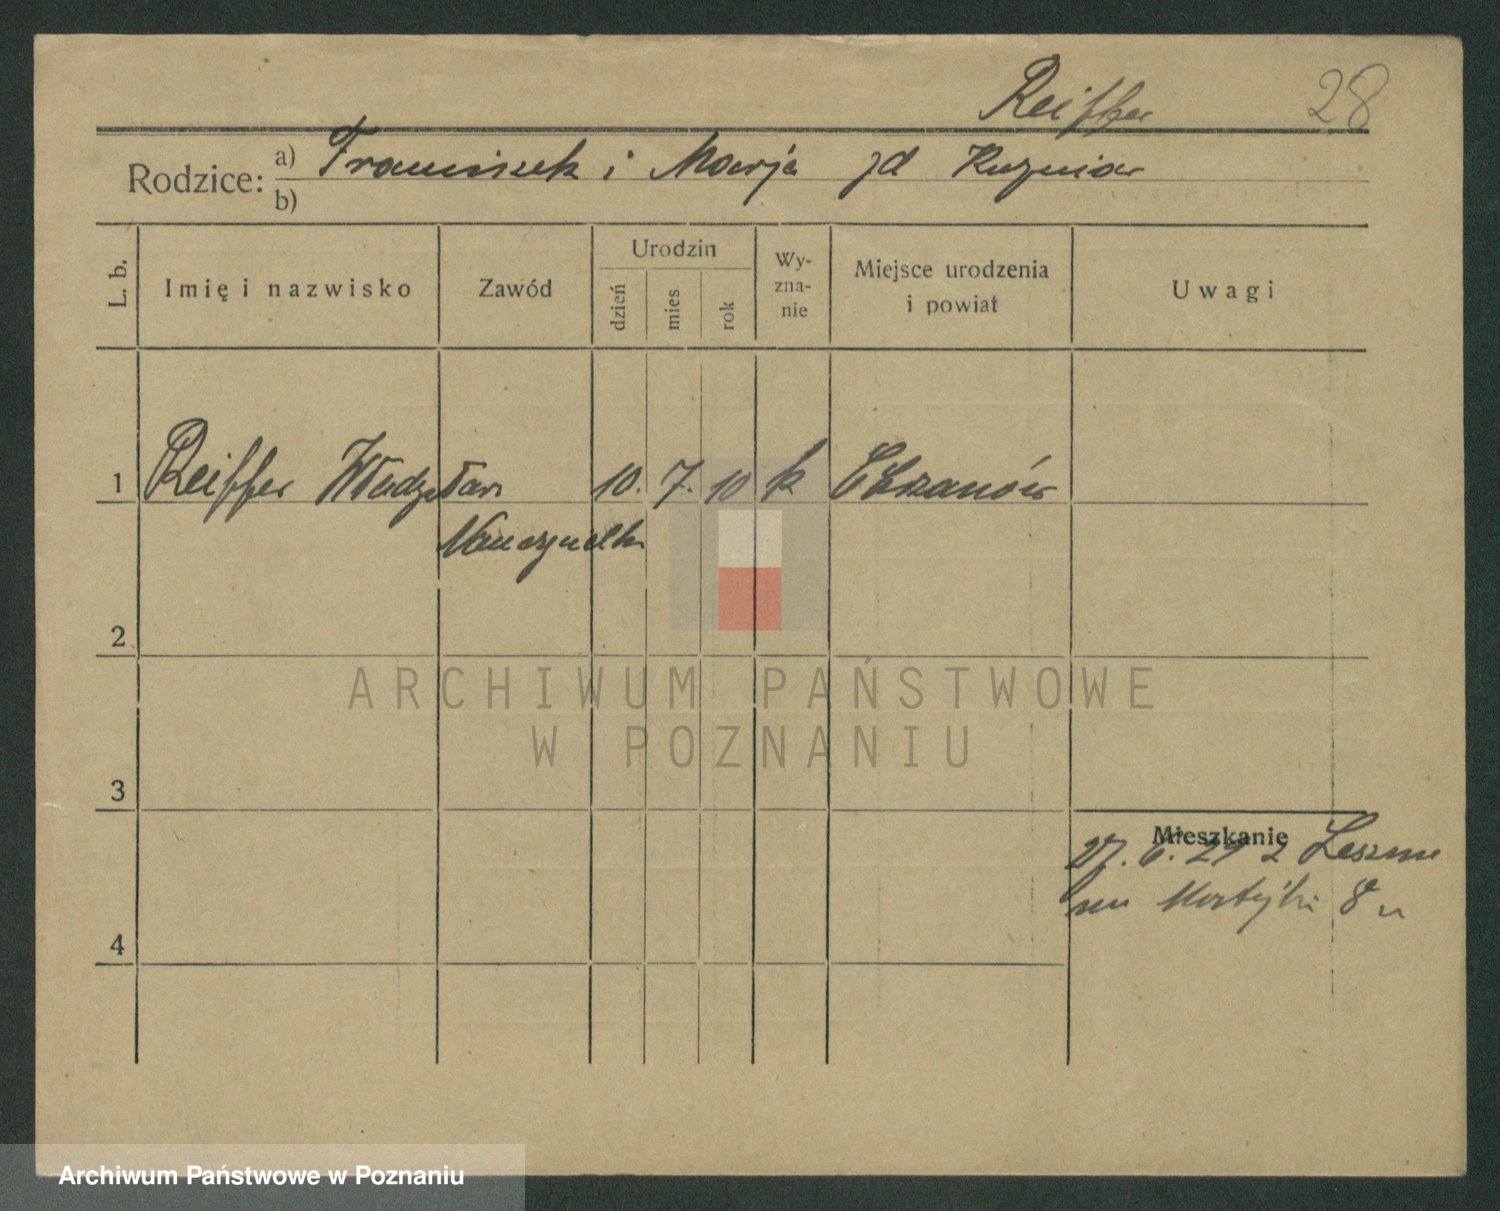 Reiffer 28
Rodzice: a) Franciszek i Marja zd Kuzniar
b)
L. b.
Imię i nazwisko
Zawód
Urodzin
dzień
mies
rok
Wy-
zna-
nie
Miejsce urodzenia
i powiat
Uwagi
1 Reiffer Władysław 10. 7. 10 k Chrzanów
2
3
4
Mieszkanie
27. 6. 29 z Leszna
8
ARCHIWUM PAŃSTWOWE
W POZNANIU
Archiwum Państwowe w Poznaniu